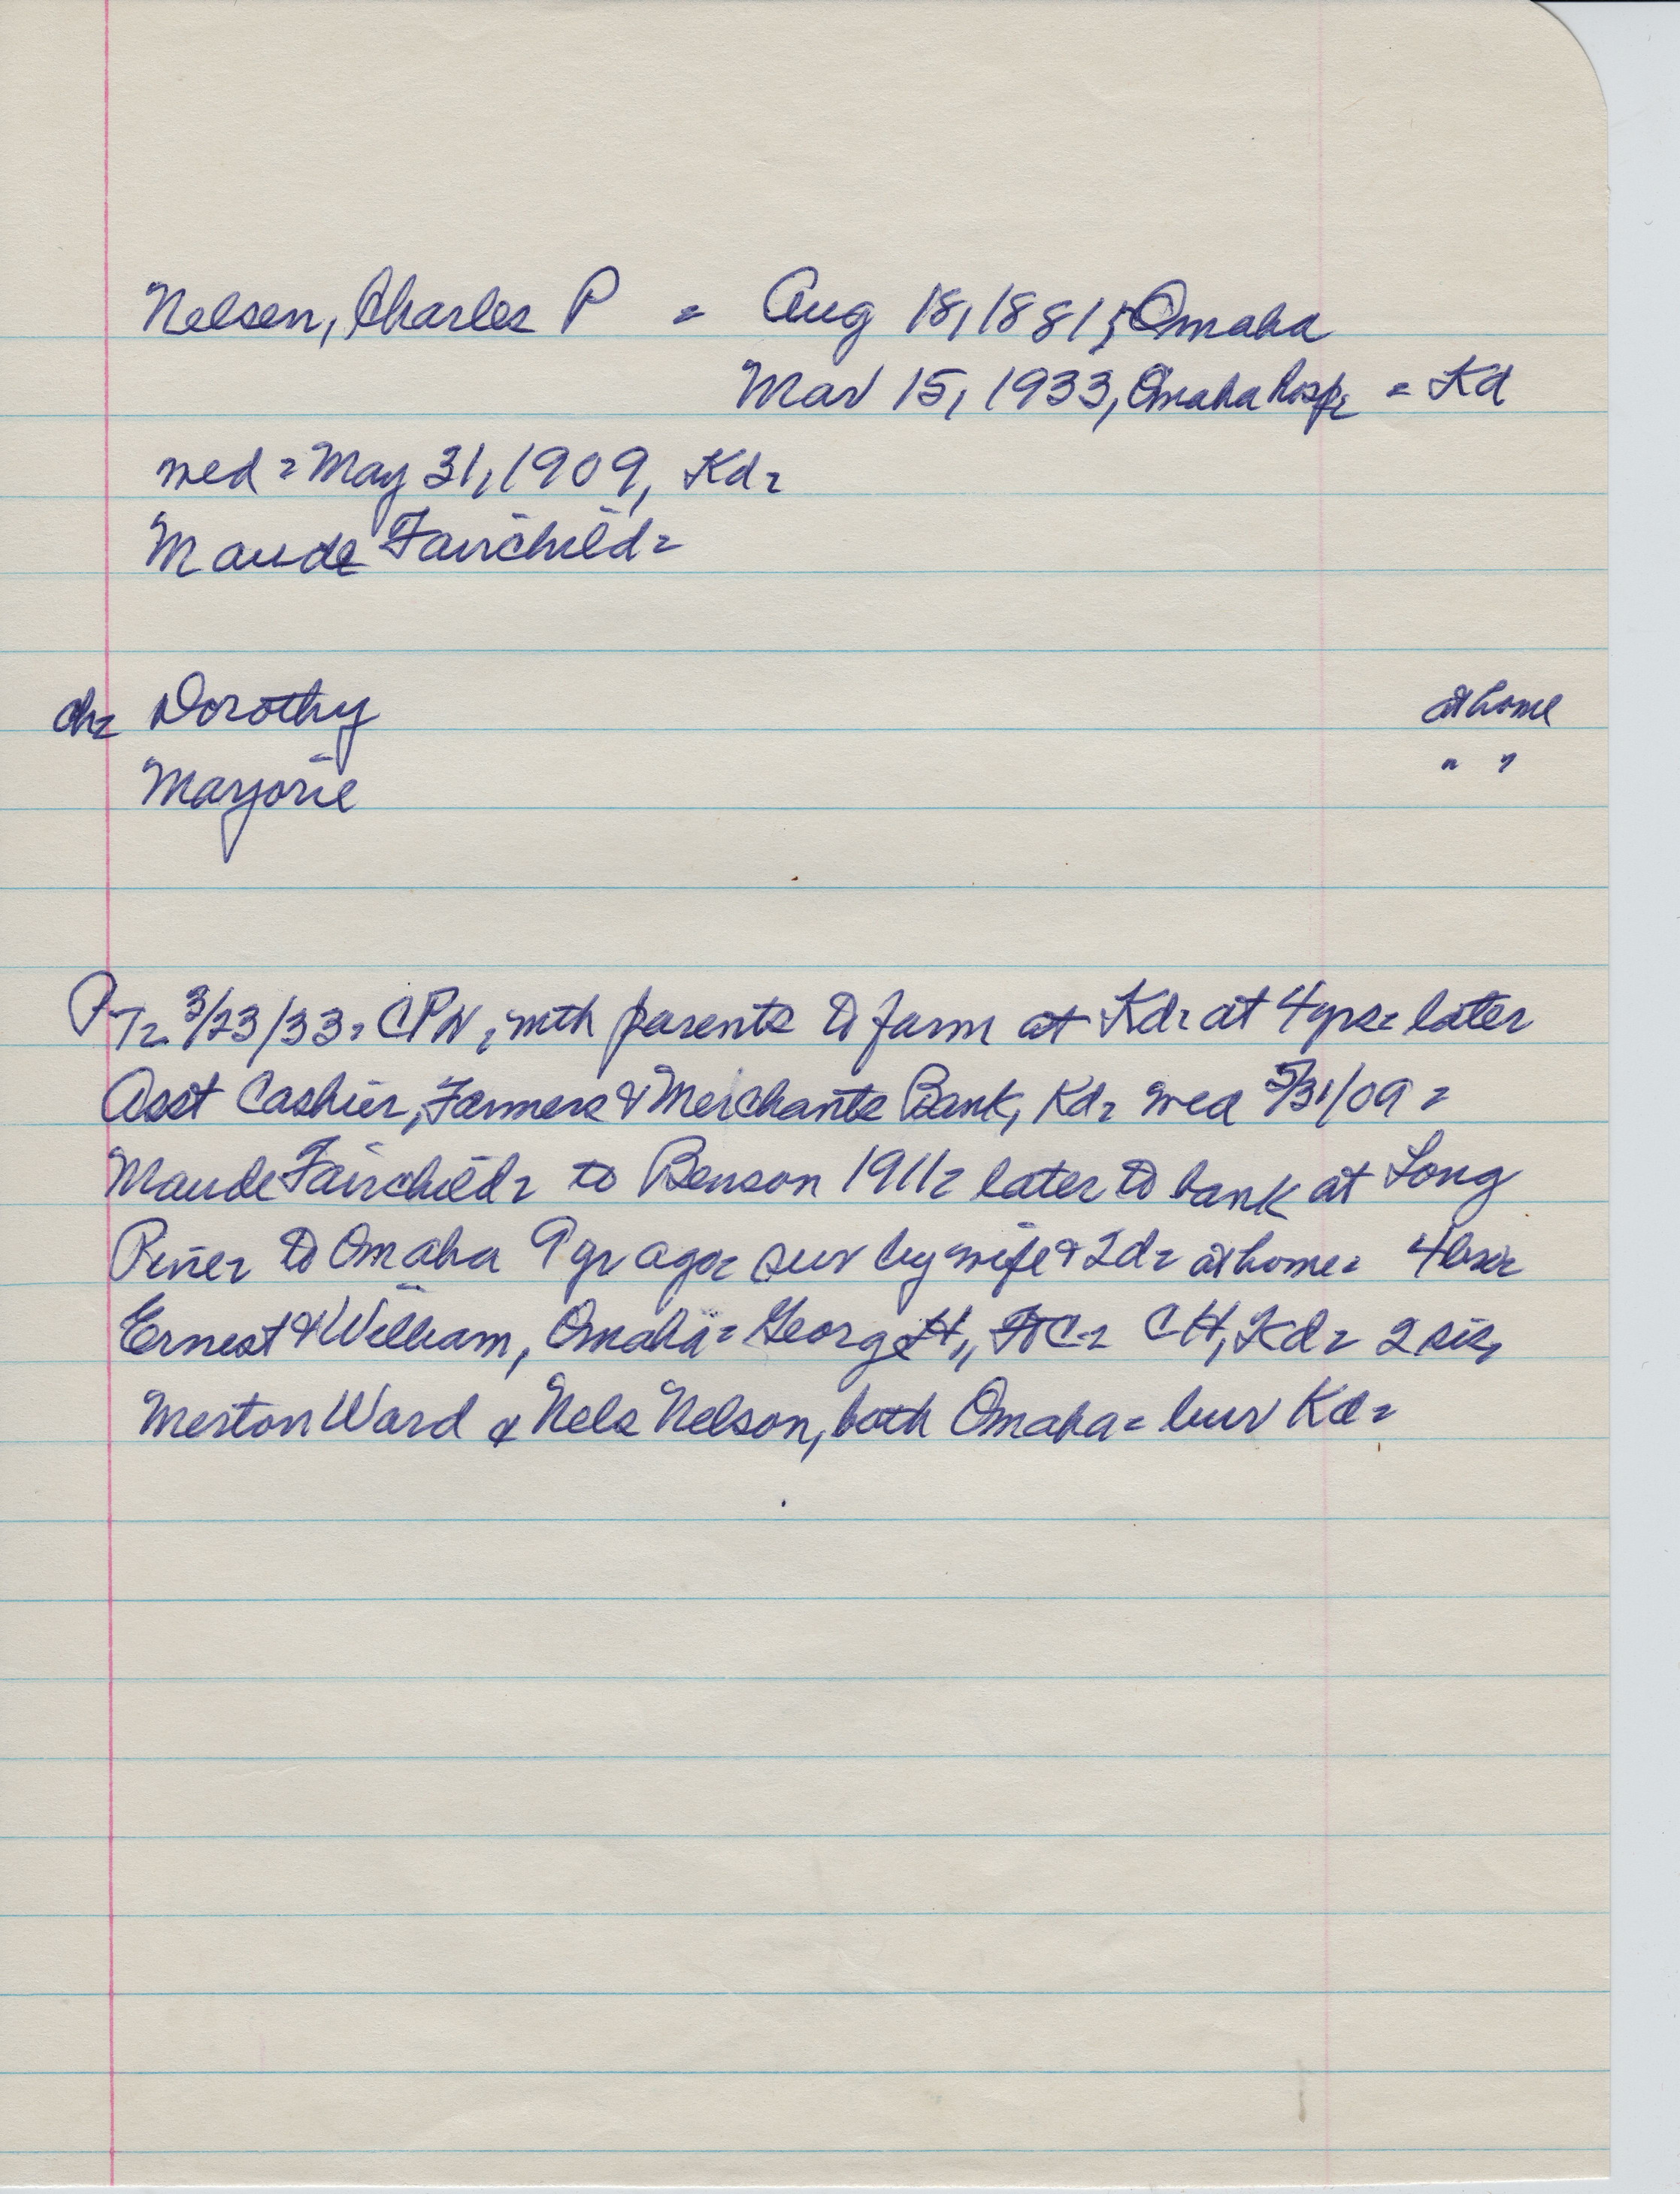 Nelsen, Charles P = Aug 18, 1881; Omaha
Mar 15, 1933, Omaha hosp = Kd
wed = May 31, 1909, Kd =
Maude Fairchild =
ch = Dorothy at home
Marjorie " "
PT = 3/23/33 = CPN, with parents to farm at Kd = at 4 yrs = later
Asst Cashier, Farmers & Merchants Bank, Kd = wed 5/31/09 =
Maude Fairchild = to Benson 1911 = later to bank at Long
Pine = to Omaha 9 yr ago = sur by wife & 2d = at home = 4 bro =
Ernest & William, Omaha = George H, = CH, Kd = 2 sis,
Merton Ward & Nels Nelson, both Omaha = bur Kd =